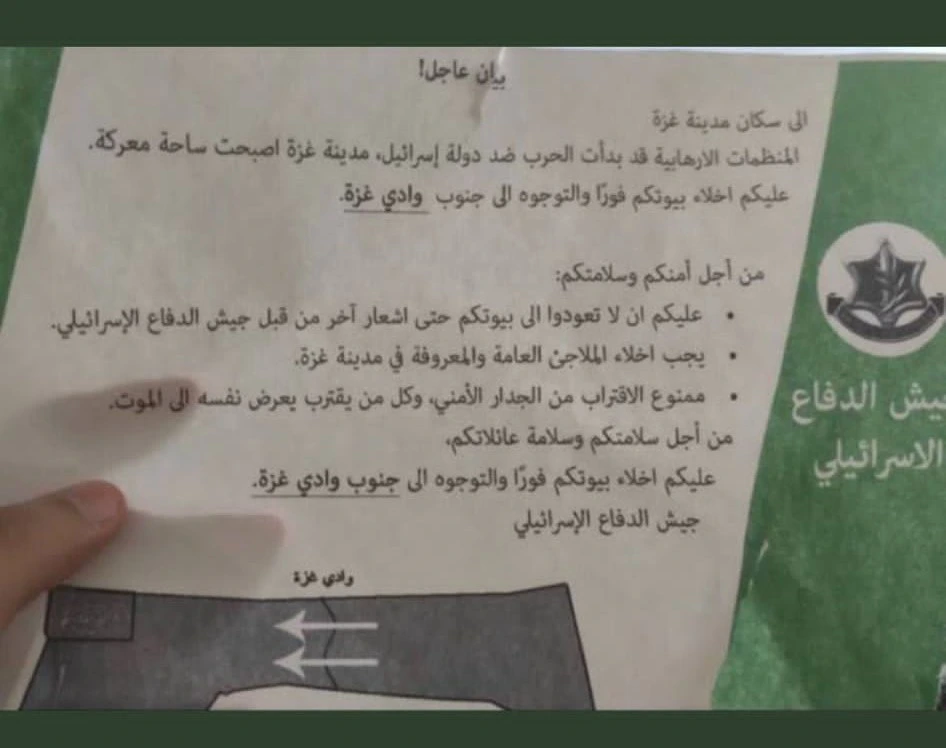 بيان عاجل!
الى سكان مدينة غزة
المنظمات الارهابية قد بدأت الحرب ضد دولة إسرائيل، مدينة غزة اصبحت ساحة معركة.
عليكم اخلاء بيوتكم فورًا والتوجوه الى جنوب وادي غزة.
من أجل أمنكم وسلامتكم:
• عليكم ان لا تعودوا الى بيوتكم حتى اشعار آخر من قبل جيش الدفاع الإسرائيلي.
• يجب اخلاء الملاجئ العامة والمعروفة في مدينة غزة.
• ممنوع الاقتراب من الجدار الأمني، وكل من يقترب يعرض نفسه الى الموت.
من أجل سلامتكم وسلامة عائلاتكم،
عليكم اخلاء بيوتكم فورًا والتوجوه الى جنوب وادي غزة.
جيش الدفاع الإسرائيلي
وادي غزة
جيش الدفاع
الاسرائيلي